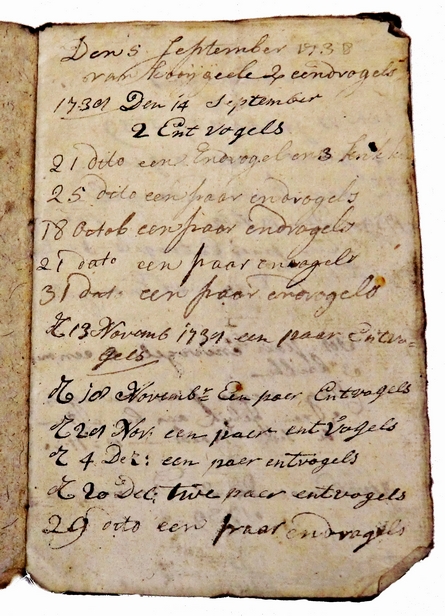 Den 5 September 1738
van kooijgeele 2 eendvogels
1739 Den 14 September
2 Ent vogels
21 dito een Endvogel en 3
25 dito een paar endvogels
18 Octob een paar endvogels
21 dato een paar envogels
31 dat. een paar endvogels
13 Novemb 1739 een paer Entvo=
gels
18 Novembr Een paer Entvogels
Nov: een paer ent Vogels
4 Dec: een paer entvogels
20 Dec: twe paer entvogels
29 dito een paar endvogels